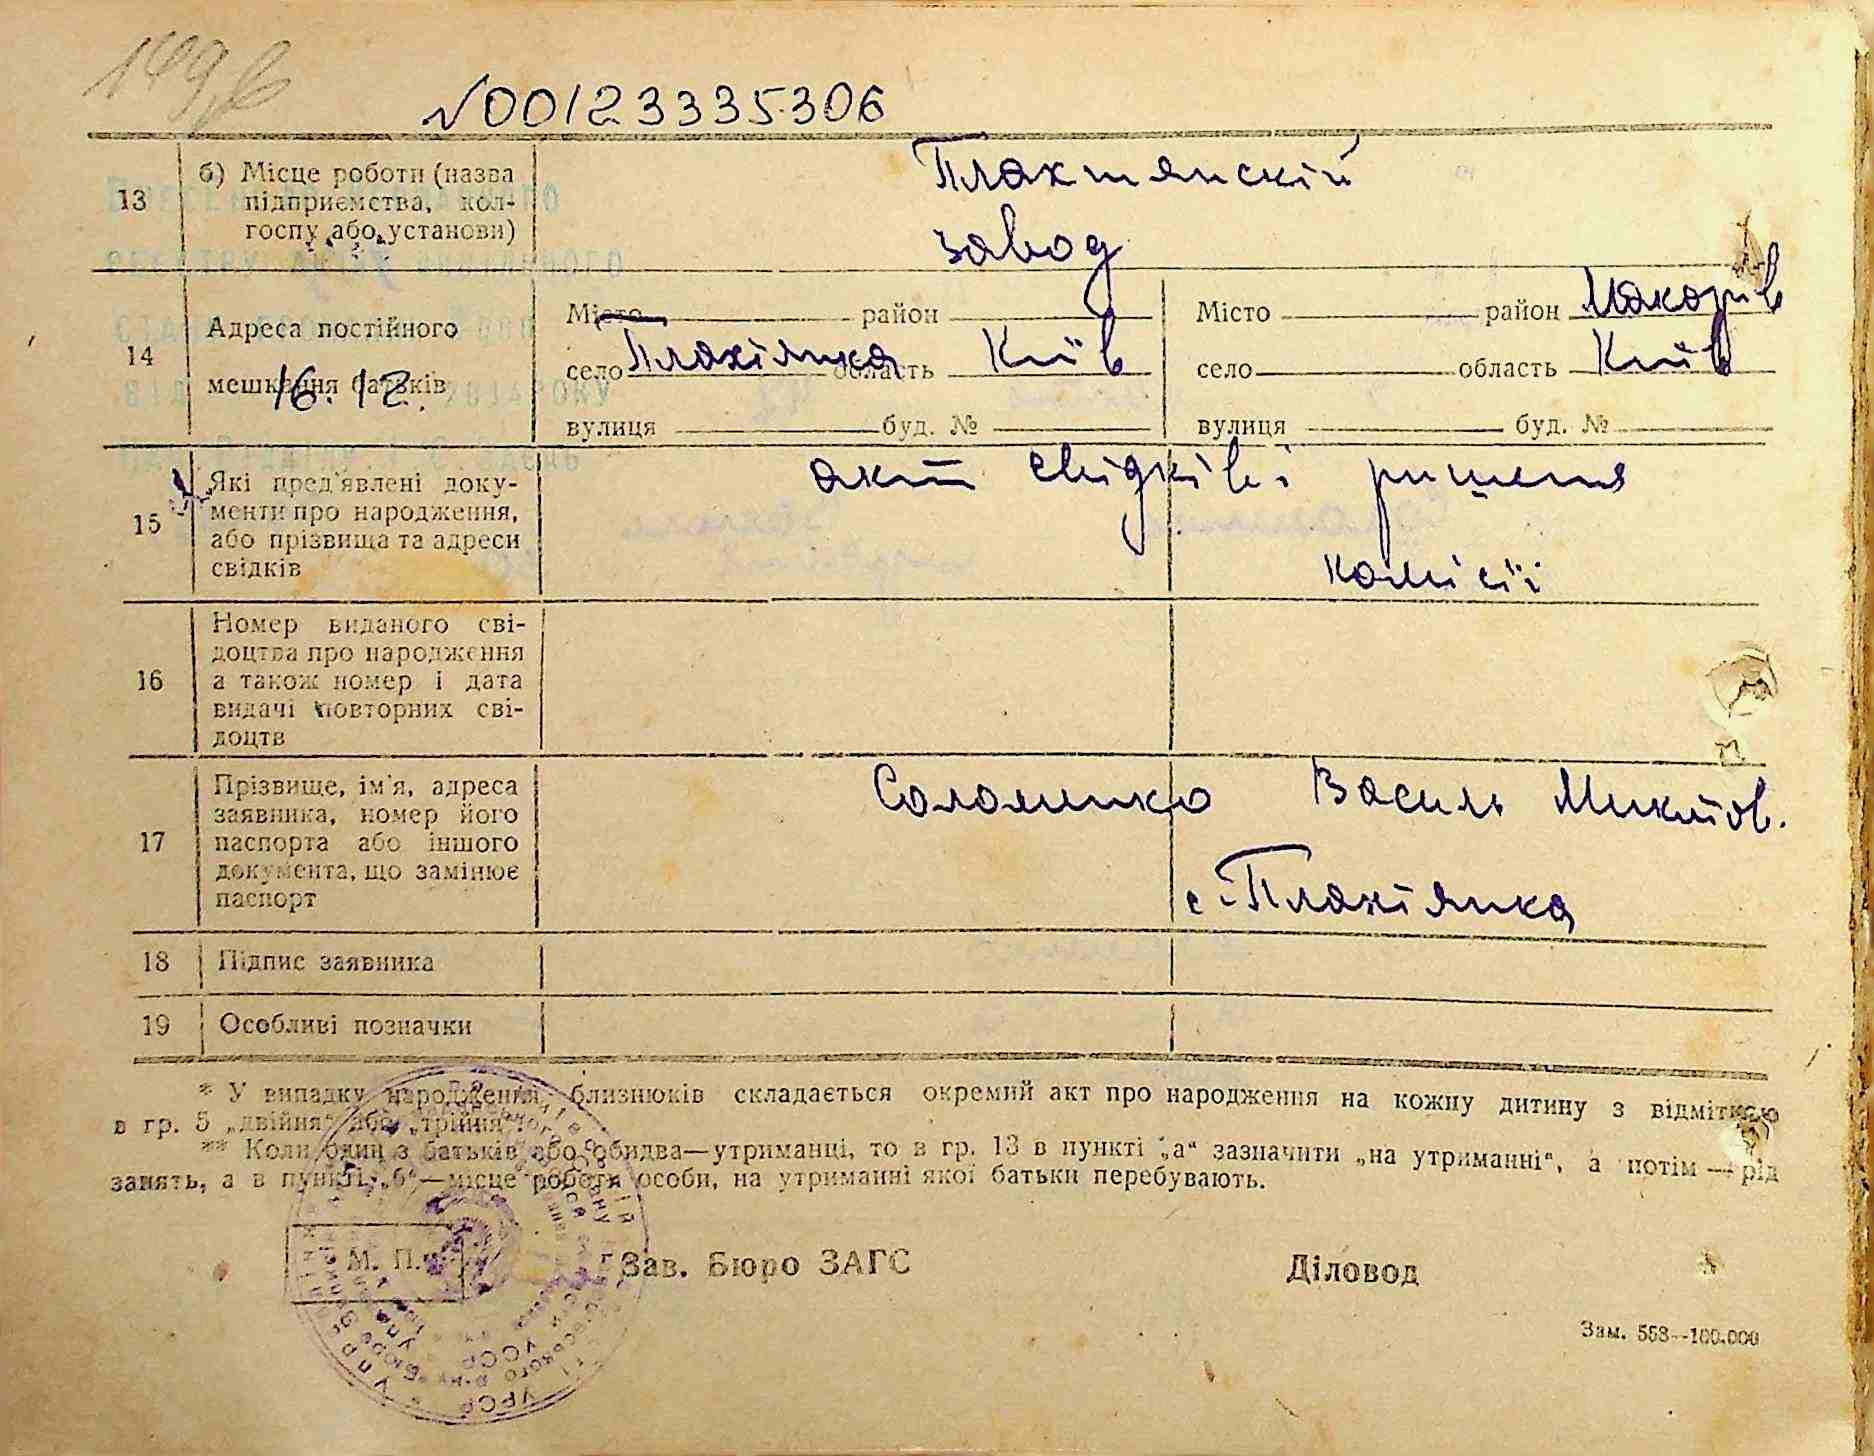 149 в
№00123335306
13 б) Місце роботи (назва
підприємства, кол-
госпу або установи)
Плахтянскій
завод
14 Адреса постійного
мешкання батьків
16.12.
Місто район Місто район Макарів
село Плахтянка область Київ село область Київ
вулиця буд. № вулиця буд. №
15 Які пред'явлені доку-
менти про народження,
або прізвища та адреси
свідків
акт свідків і ришення
комісіїї
16 Номер виданого сві-
доцтва про народження
а також номер і дата
видачі повторних сві-
доцтв
17 Прізвище, ім'я, адреса
заявника, номер його
паспорта або іншого
документа, що замінює
паспорт
Соломянко Василь Микитов.
с. Плахтянка
18 Підпис заявника
19 Особливі позначки
* У випадку народження близнюків складається окремий акт про народження на кожну дитину з відміткою
в гр. 5 „двійня“ або „трійня“.
** Коли один з батьків або обидва—утриманці, то в гр. 13 в пункті „а“ зазначити „на утриманні“, а потім — рід
занять, а в пункті „б“—місце роботи особи, на утриманні якої батьки перебувають.
М. П. Зав. Бюро ЗАГС Діловод
Зам. 558—100.000